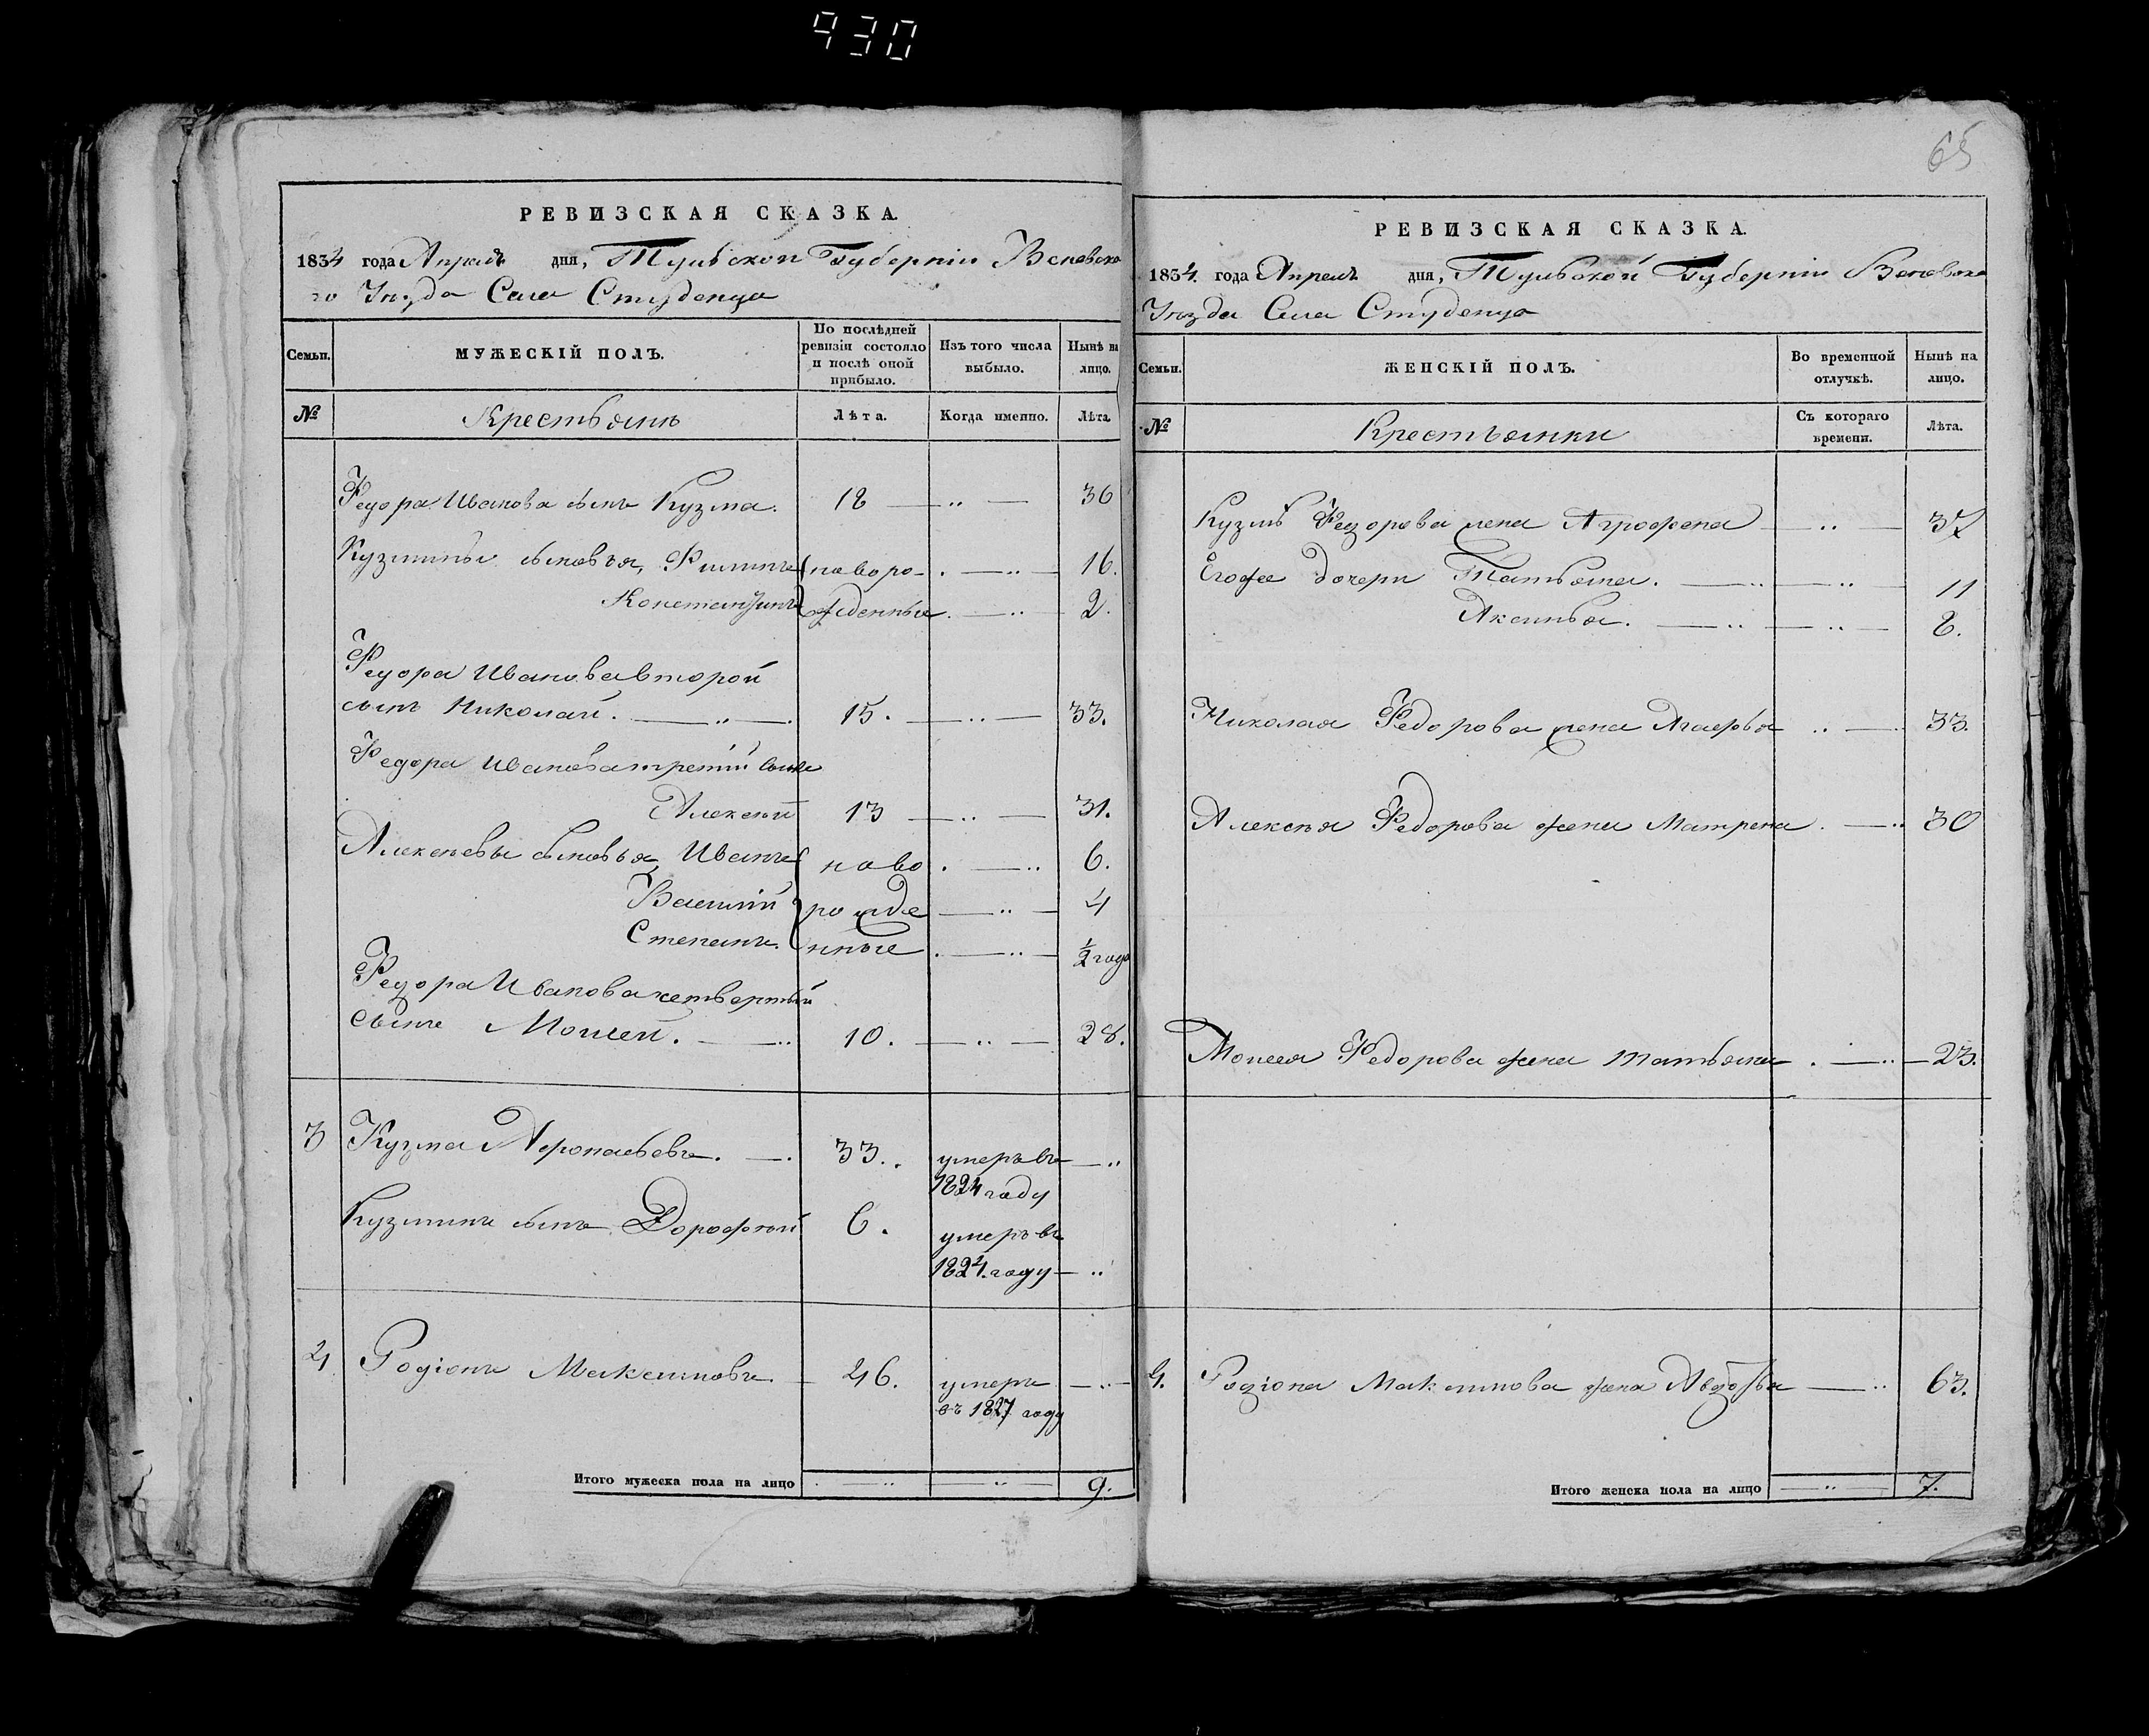 930
65
РЕВИЗСКАЯ СКАЗКА.
1834 года Апреля дня, Тульской Губерніи Веневско
го Уѣзда Села Студенца
Семьи.
МУЖЕСКІЙ ПОЛЪ.
По послѣдней
ревизіи состояло
и послѣ оной
прибыло.
Изъ того числа
выбыло.
Нынѣ на
лицо.
№
Крестьянъ
Лѣта.
Когда именно.
Лѣта
Федора Иванова сынъ Кузма. 18 36
Кузмины сыновья, Филипъ новоро- 16.
Константинъ жденныя 2.
Федора Иванова второй
сынъ Николай. 15. 33.
Федора Иванова третій сынъ
Алексей 13 31.
Алексеевы сыновья, Иванъ ново 6.
Василій рожде 4
Степанъ. нные ½ года
Федора Иванова четвертый
сынъ Мосией. 10. 28.
3 Кузма 33. умеръ въ
1824 году
Кузминъ сынъ Дорофей 6. умеръ въ
1824. году
4 Родіонъ Максимовъ. 46. умеръ
въ 1827 году
Итого мужеска пола на лицо 9.
РЕВИЗСКАЯ СКАЗКА.
1834. года Апреля дня, Тульской Губерніи Веневска
Уѣзда Села Студенца
Семьи.
ЖЕНСКІЙ ПОЛЪ.
Во временной
отлучкѣ.
Нынѣ на
лицо.
№
Крестьянки
Съ котораго
времени.
Лѣта.
Кузмы Федорова жена Агрофена 37
Егоже дочери Татьяна. 11
Аксинья. 8.
Николая Федорова жена Агафья 33.
Алексея Федорова жена Матрена 30
Мосиея Федорова жена Татьяна 23.
4. Родіона Максимова жена Авдотья 63.
Итого женска пола на лицо 7.